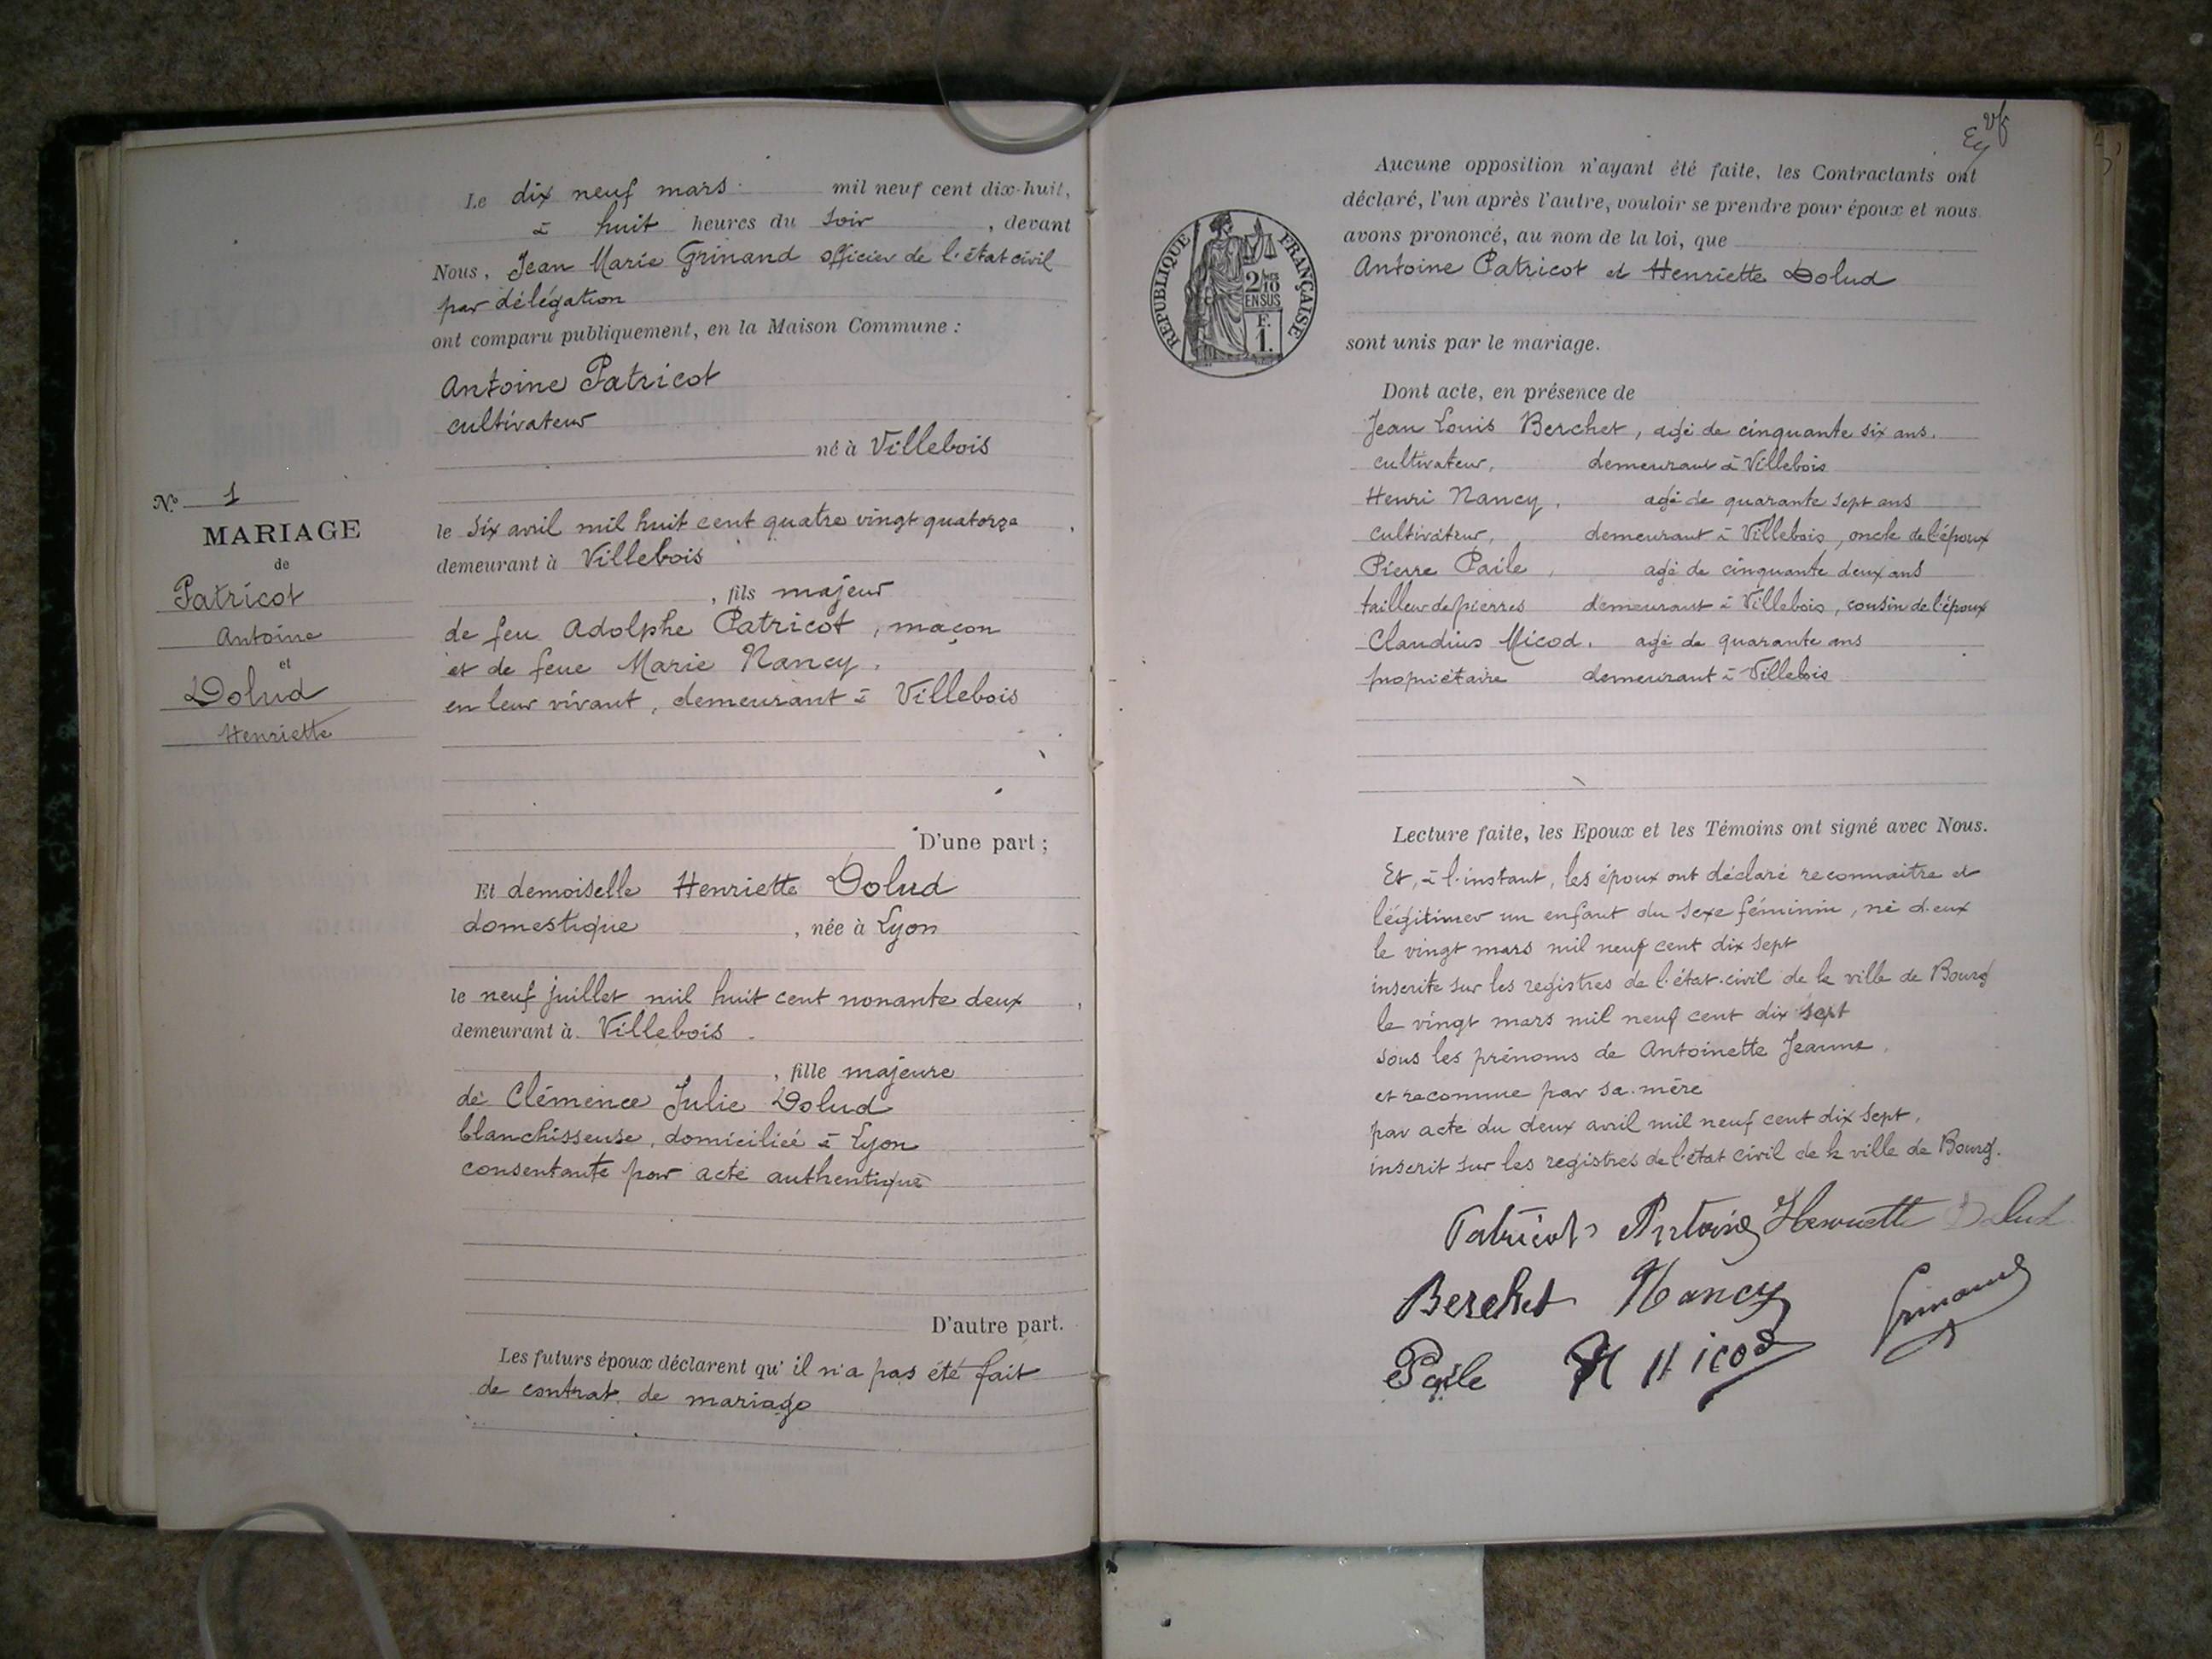 Le dix neuf mars mil neuf cent dix-huit,
à huit heures du soir, devant
Nous, Jean Marie Grinand officier de l'état civil
par délégation
ont comparu publiquement, en la Maison Commune :
Antoine Patricot
cultivateur
né à Villebois
N° 1
MARIAGE
de
Patricot
Antoine
et
Dolud
Henriette
le six avril mil huit cent quatre vingt quatorze,
demeurant à Villebois
, fils majeur
de feu Adolphe Patricot, maçon
et de feue Marie Nancy,
en leur vivant, demeurant à Villebois
D'une part ;
Et demoiselle Henriette Dolud
domestique, née à Lyon
le neuf juillet mil huit cent nonante deux,
demeurant à Villebois.
, fille majeure
de Clémence Julie Dolud
blanchisseuse, domiciliée à Lyon
consentante par acte authentique
D'autre part.
Les futurs époux déclarent qu'il n'a pas été fait
de contrat de mariage
Aucune opposition n'ayant été faite, les Contractants ont
déclaré, l'un après l'autre, vouloir se prendre pour époux et nous
avons prononcé, au nom de la loi, que
Antoine Patricot et Henriette Dolud
sont unis par le mariage.
REPUBLIQUE FRANÇAISE
2/10
EN SUS
F.
1.
Dont acte, en présence de
Jean Louis Berchet, agé de cinquante six ans.
cultivateur, demeurant à Villebois
Henri Nancy, agé de quarante sept ans
cultivateur, demeurant à Villebois, oncle de l'époux
Pierre Paile, agé de cinquante deux ans
tailleur de pierres demeurant à Villebois, cousin de l'époux
Claudius Micod, agé de quarante ans
propriétaire demeurant à Villebois
Lecture faite, les Epoux et les Témoins ont signé avec Nous.
Et, à l'instant, les époux ont déclaré reconnaitre et
légitimer un enfant du sexe féminin, né d'eux
le vingt mars mil neuf cent dix sept
inscrite sur les registres de l'état-civil de la ville de Bourg
le vingt mars mil neuf cent dix sept
sous les prénoms de Antoinette Jeanne,
et reconnue par sa mère
par acte du deux avril mil neuf cent dix sept,
inscrit sur les registres de l'état civil de la ville de Bourg.
Patricot Antoine Henriette Dolud
Berchet Nancy Grinand
Paile Micod